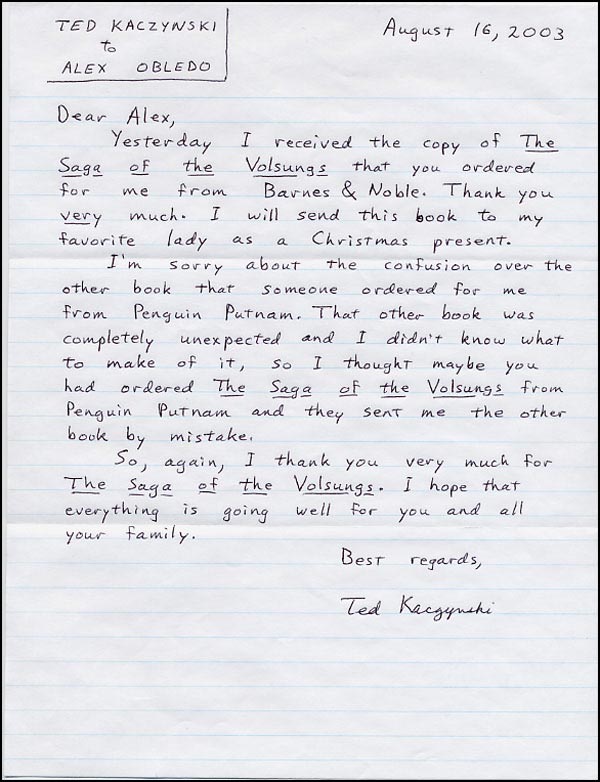 TED KACZYNSKI
to
ALEX OBLEDO
August 16, 2003
Dear Alex,
Yesterday I received the copy of The
Saga of the Volsungs that you ordered
for me from Barnes & Noble. Thank you
very much. I will send this book to my
favorite lady as a Christmas present.
I'm sorry about the confusion over the
other book that someone ordered for me
from Penguin Putnam. That other book was
completely unexpected and I didn't know what
to make of it, so I thought maybe you
had ordered The Saga of the Volsungs from
Penguin Putnam and they sent me the other
book by mistake.
So, again, I thank you very much for
The Saga of the Volsungs. I hope that
everything is going well for you and all
your family.
Best regards,
Ted Kaczynski